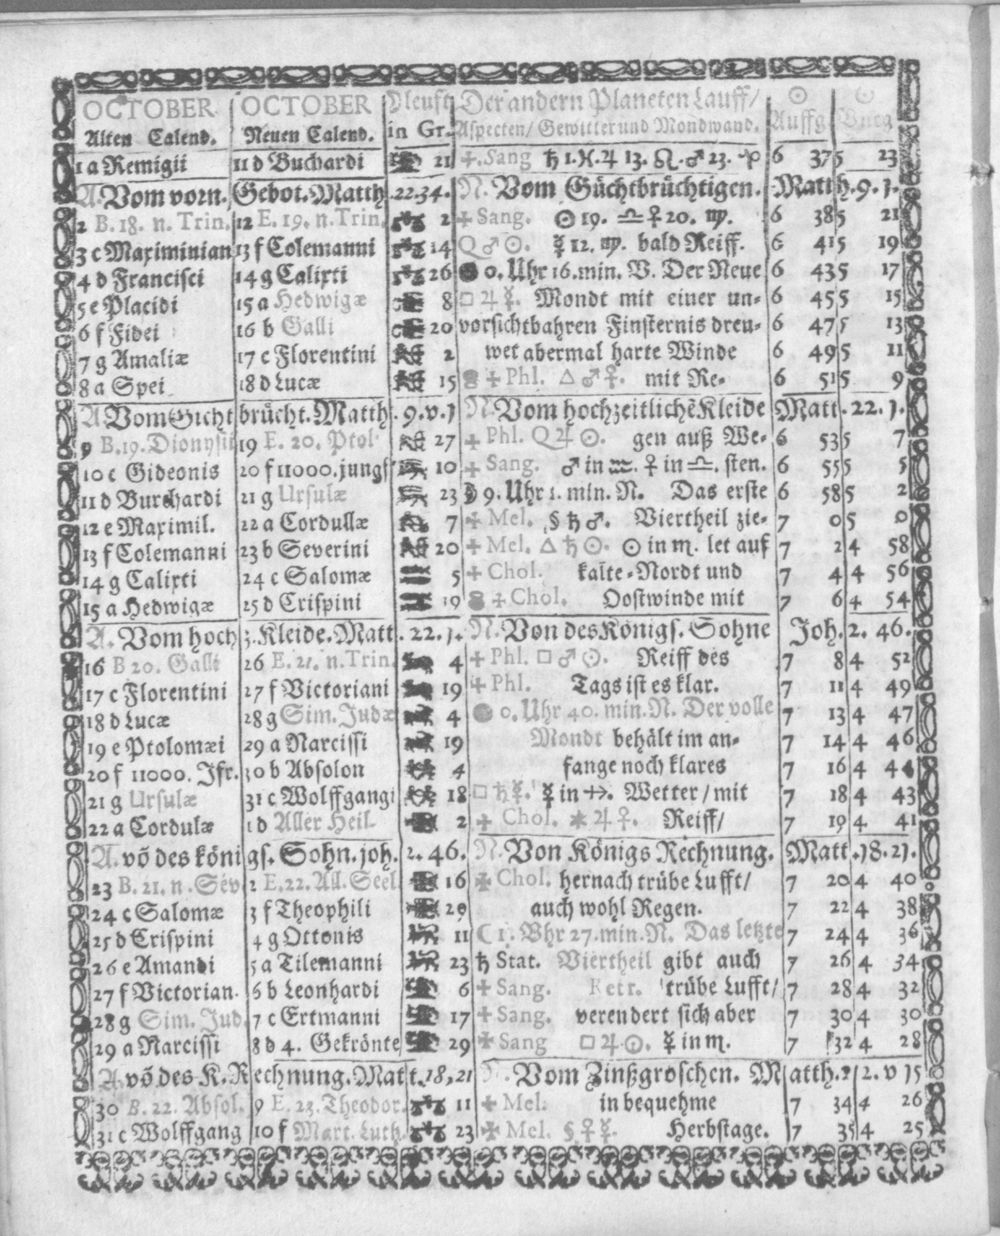 OCTOBER OCTOBER Der andern Planeten Lauff/ ☉
Alten Calend. Neuen Calend. in Gr. Aspecten/ Gewitter und Mondwand. Auffg.
1 a Remigii 11 d Buchardi 21 ✢. Sang ♄ 1. ♓. ♃ 13. ♌. ♂ 23. 6 37 5 23
A. Vom vorn. Gebot. Matth. 22.34. N. Vom Güchtbrüchtigen. Matth. 9.1.
2 B. 18. n. Trin. 12 E. 19. n. Trin. 2 ✢ Sang. ☉ 19. ♎ ♀ 20. ♍. 6 38 5 21
3 c Maximinian 13 f Colemanni 14 Q ♂ ☉. ☿ 12. ♍. bald Reiff. 6 41 5 19
4 d Francisci 14 g Calixti 26 ● 0. Uhr 16. min. V. Der Neue 6 43 5 17
5 e Placidi 15 a Hedwigæ 8 □ ♃ ☿. Mondt mit einer un- 6 45 5 15
6 f Fidei 16 b Galli 20 vorsichtbahren Finsternis dreu- 6 47 5 13
7 g Amaliæ 17 c Florentini 2 wet abermal harte Winde 6 49 5 11
8 a Spei 18 d Lucæ 15 ✢ Phl. △ ♂ ♀. mit Re- 6 51 5 9
A. Vom Gicht brücht. Matth. 9. v. 1 N. Vom hochzeitlichē Kleide Matt. 22. 1.
9 B. 19. Dionysii 19 E. 20. Ptol 27 ✢ Phl. Q ♃ ☉. gen auß We- 6 53 5 7
10 c Gideonis 20 f 11000. jungf 10 ✢ Sang. ♂ in ♒. ♀ in ♎. sten. 6 55 5 5
11 d Burchardi 21 g Ursulæ 23 ☽ 9. Uhr 1. min. N. Das erste 6 58 5 2
12 e Maximil. 22 a Cordullæ 7 ✢ Mel. § ♄ ♂. Viertheil zie- 7 0 5 0
13 f Colemanni 23 b Severini 20 ✢ Mel. △ ♄ ☉. ☉ in ♏. let auf 7 2 4 58
14 g Calixti 24 c Salomæ 5 ✢ Chol. kalte-Nordt und 7 4 4 56
15 a Hedwigæ 25 d Crispini 19 ✢ Chol. Oostwinde mit 7 6 4 54
A. Vom hoch z. Kleide. Matt. 22. 1. N. Von des Königs. Sohne Joh. 2. 46.
16 B 20. Galli 26 E. 21. n. Trin. 4 ✢ Phl. □ ♂ ☉. Reiff des 7 8 4 52
17 c Florentini 27 f Victoriani 19 ✢ Phl. Tags ist es klar. 7 11 4 49
18 d Lucæ 28 g Sim. Judæ 4 0. Uhr 40. min. N. Der volle 7 13 4 47
19 e Ptolomæi 29 a Narcissi 19 Mondt behält im an- 7 14 4 46
20 f 11000. Jfr. 30 b Absolon 4 fange noch klares 7 16 4 44
21 g Ursulæ 31 c Wolffgangi 18 □ ♄ ☿. ☿ in ♐. Wetter/ mit 7 18 4 43
22 a Cordulæ 1 d Aller Heil. 2 ✢ Chol. ✶ ♃ ♀. Reiff/ 7 19 4 41
A. võ des köni gs. Sohn. joh. 2. 46. N. Von Königs Rechnung. Matt. 18. 21.
23 B. 21. n. Sev 2 E. 22. All. Seel. 16 ✠ Chol. hernach trübe Lufft/ 7 20 4 40
24 c Salomæ 3 f Theophili 29 auch wohl Regen. 7 22 4 38
25 d Crispini 4 g Ottonis 11 ☾ 1. Vhr 27. min. N. Das letzte 7 24 4 36
26 e Amandi 5 a Tilemanni 23 ♄ Stat. Viertheil gibt auch 7 26 4 34
27 f Victorian. 6 b Leonhardi 6 ✢ Sang. Retr. trübe Lufft/ 7 28 4 32
28 g Sim. Jud. 7 c Ertmanni 17 ✢ Sang. verendert sich aber 7 30 4 30
29 a Narcissi 8 d 4. Gekrönte 29 ✠ Sang □ ♃ ☉. ☿ in ♏. 7 32 4 28
A. võ des K. Rechnung. Matt. 18, 21 Vom Zinßgroschen. Matth. 22. v 15
30 B. 22. Absol. 9 E. 23. Theodor. 11 ✢ Mel. in bequehme 7 34 4 26
31 c Wolffgang 10 f Mart. Luth. 23 ✠ Mel. § ♀ ☿. Herbstage. 7 35 4 25